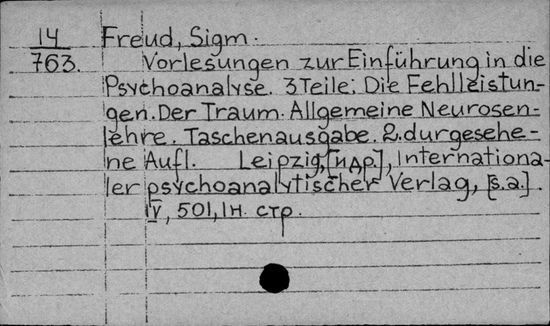 14
763.
Freud, Sigm.
Vorlesungen zur Einführung in die
Psychoanalyse. 3 Teile: Die Fehlleistun-
gen. Der Traum. Allgemeine Neurosen-
lehre. Taschenausgabe. 2. durgesehe-
ne Aufl. Leipzig, [и др.], Internationa-
ler psychoanalytischer Verlag, [s.a.].
IV, 501, 1 н. стр.